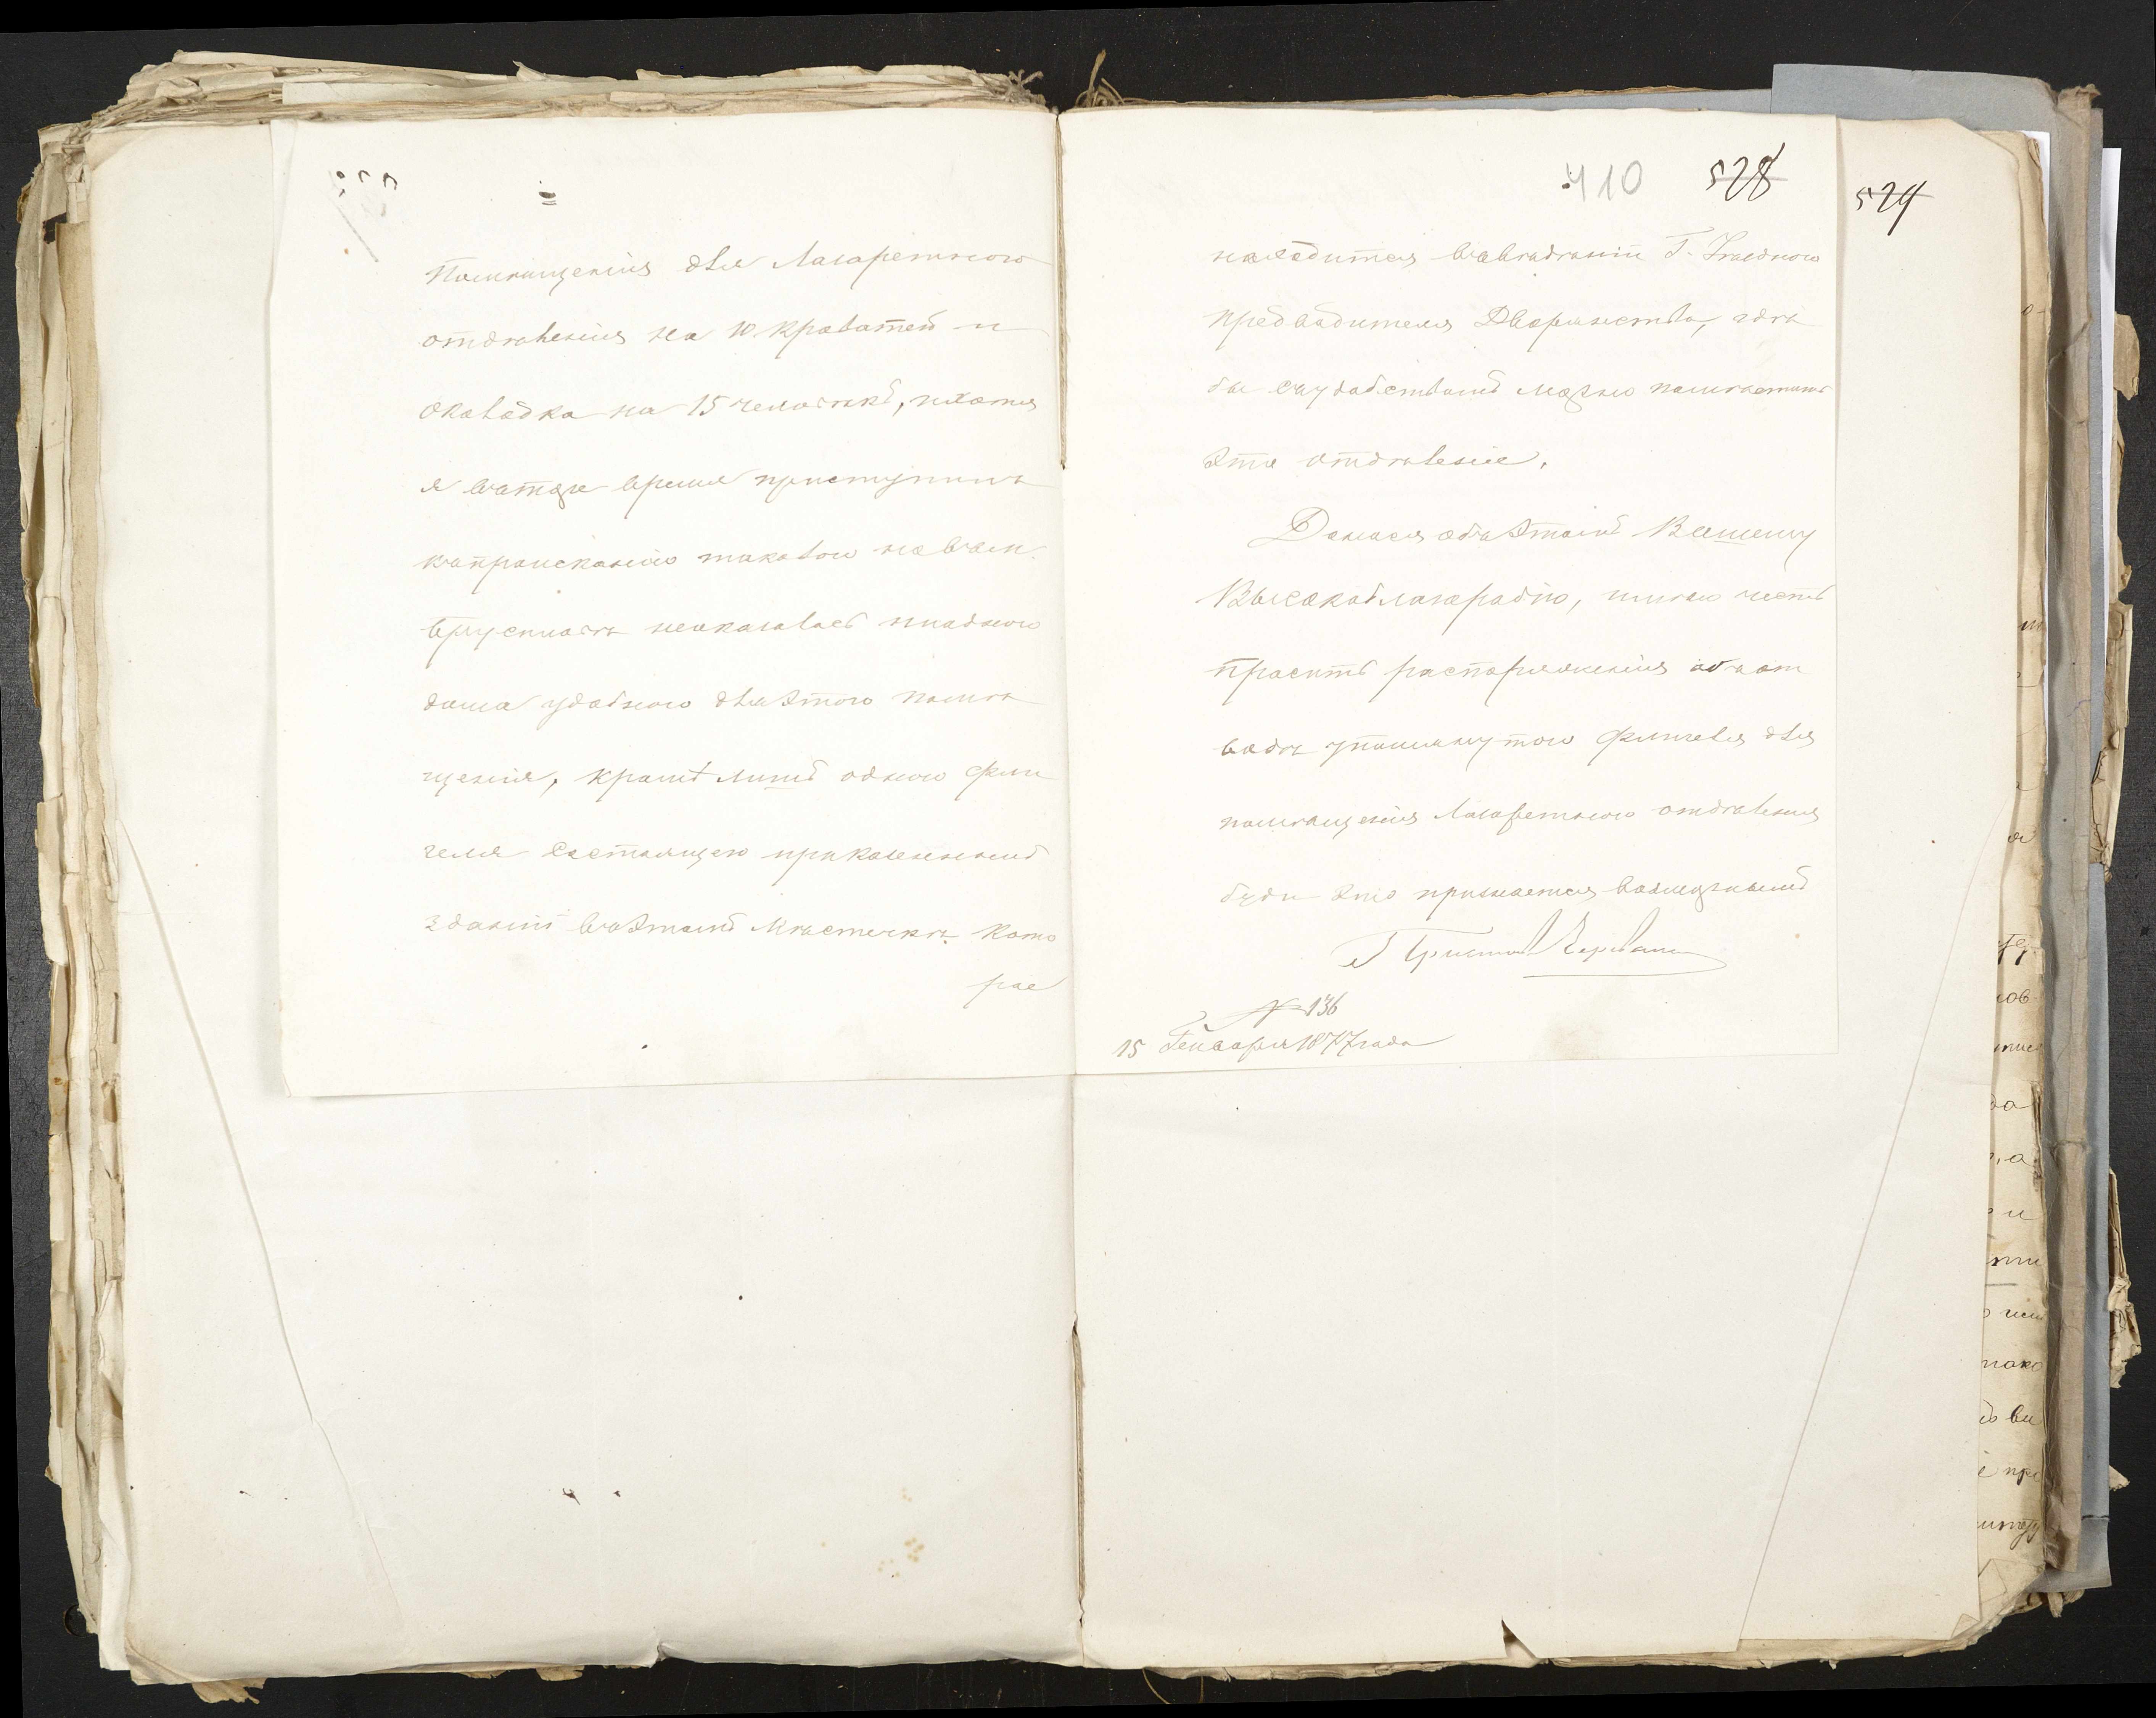 помѣщенія для Лазаретного
отдѣленія на 10 кроватей и
околодка на 15 человѣкъ, ихотя
я вътоже время приступилъ
къпроисканію таковои навъ
впрусиловѣ неоказалось ниодного
дома удобного дляэтого помѣ
щенія, кромѣ лишь одного фли
геля состоящего приказенномъ
зданіи въэтомъ мѣстечкѣ кото
рое
410 528
529
находится въвѣдѣніи Г. Уѣздного
предводителя Дворянства, гдѣ
бы съудобствомъ можно помѣстить
это отдѣленіе.
Донося объэтомъ Вашему
Высокоблагородію, имѣю честь
просить распоряженія объот
водѣ упомянутого флигеля для
помѣщенія Лазаретного отдѣленія
буде это признается возможнымъ
Приставъ
№ 136
15 Генваря 1877 года